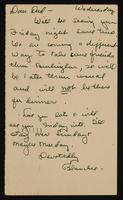 Dear Dad — Wednesday
Will be seeing you
Friday night Same time
We are coming a different
way to take some friends
from Burlington, so will
be later than usual
and will not bother
for dinner.
you late &
see you Friday
Sunday &
maybe Monday.
Devotedly